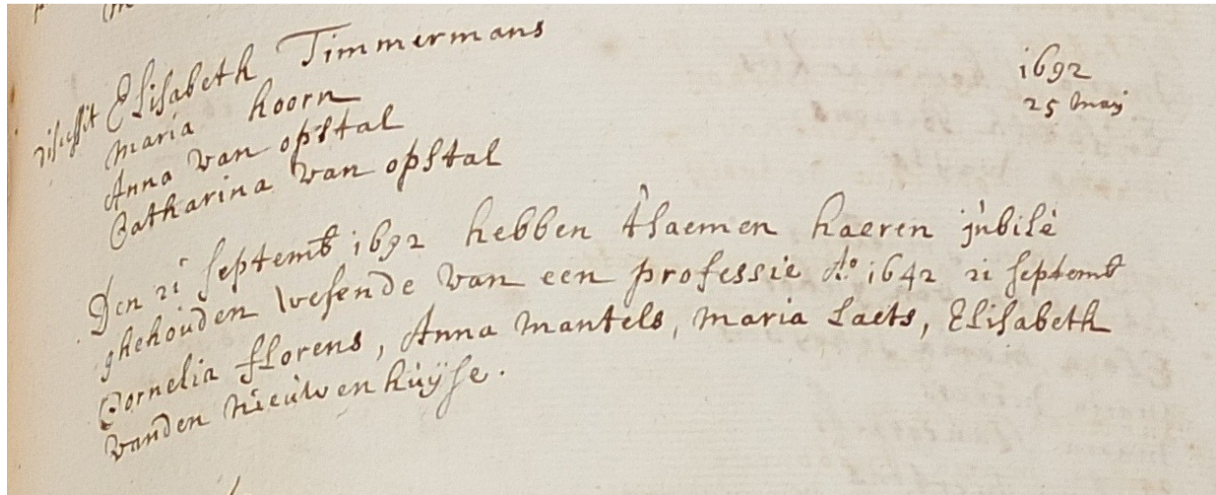 discessit Elisabeth Timmermans
1692
25 maij
maria hoorn
Anna van opstal
Catharina van opstal
Den 21 septemb 1692 hebben t'saemen haeren jubilé
ghehouden wesende van een professie Ao 1642 21 septemb
Cornelia fflorens, Anna mantels, maria Laets, Elisabeth
vanden nieuwenhuÿse.